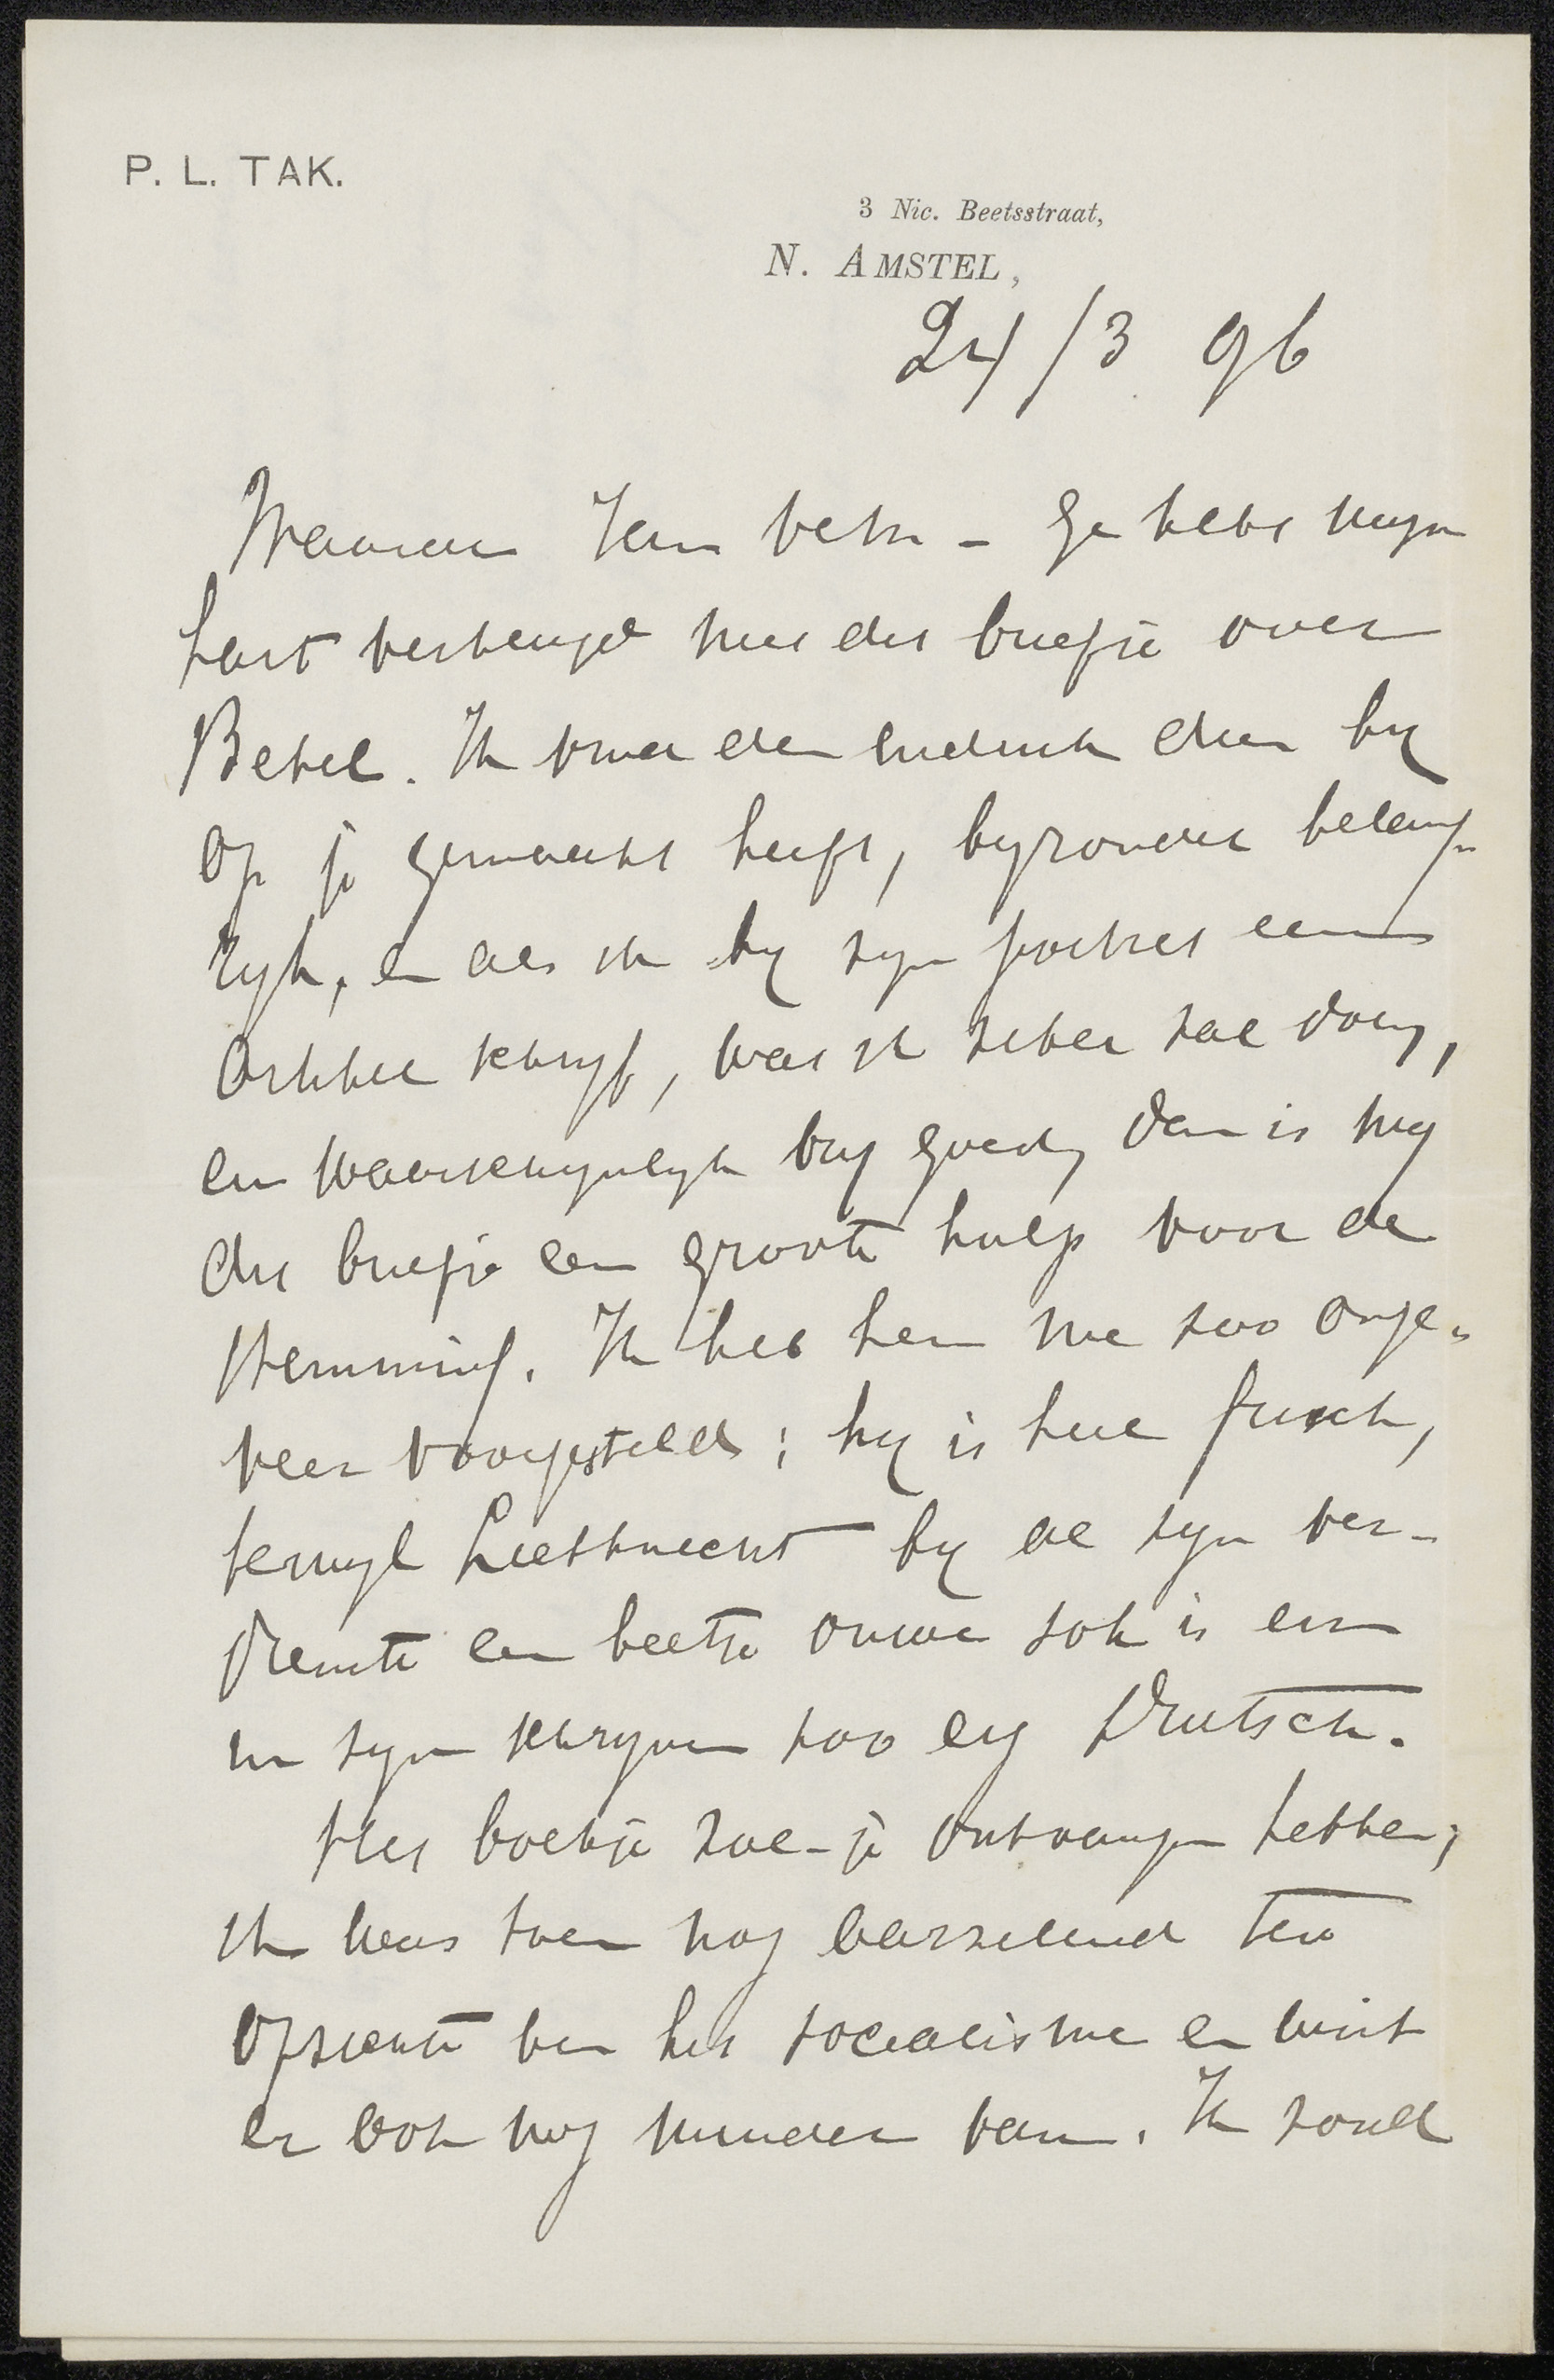 P. L. TAK.
3 Nic. Beetsstraat,
N. AMSTEL,
24/3 96
Waarde Jan Veth - Ge hebt mijn
hart verheugd met dit briefje over
Bebel. Ik vind den indruk dien hij
op je gemaakt heeft, bijzonder belang-
rijk, en als ik bij zijn portret eens
artikel schrijf, wat ik zeker zal doen,
en waarschijnlijk vrij goed, dan is mij
dit briefje een groote hulp voor de
stemming. Ik heb hem me zoo onge-
veer voorgesteld; hij is heel frisch,
terwijl Liebknecht bij al zijn ver-
dienste een beetje ouwe sok is en
in zijn schrijven zoo erg Deutsch.
Het boekje zal-je ontvangen hebben;
ik was toen nog aarzelend ten
opzichte van het socialisme en wist
er ook nog minder van. Ik zond